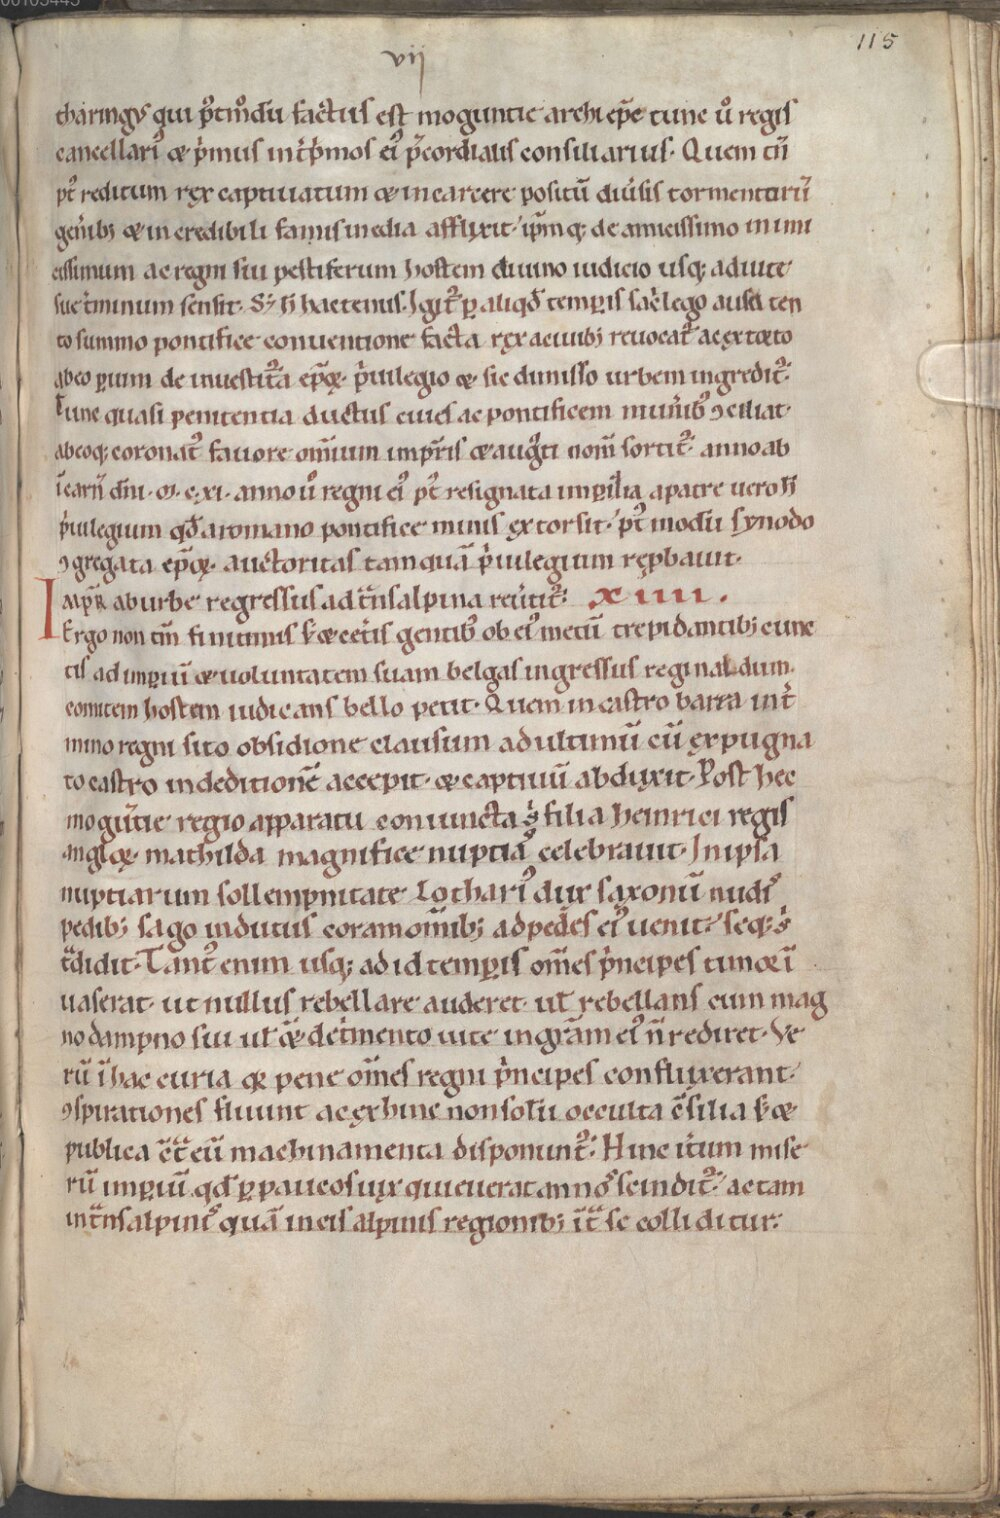 115
vii
tharingꝰ qui p̉tm̊dū factus est moguntie archiep̄c tunc ů regis
cancellariꝰ & p̓mus int̓p̓mos eiꝰ p̄cordialis consiliarius. Quem cū
pꝰt reditum rex captiuatum & incarcere positū diũsis tormentorū
gen̄ibꝫ & incredibili famis inedia afflixit. ip̄mqꝫ de amicissimo inimi
cissimum ac regni sui pestiferum hostem diuino iudicio usqꝫ ad uite
sue t̓minum sensit. Sꝫ h̄ hactenus. Igit᷑ ꝑ aliqd̄ temꝑis sac̓lego ausu ten
to summo pontifice conuentione facta rex acuibꝫ reuocat᷑ ac extorto
abeo ꝑuum de inuestit᷑a ep̄oꝝ p̓uilegio & sic dimisso urbem ingredit᷑.
Tunc quasi penitentia ductus ciues ac pontificem mun̄ibꝰ ꝯciliat.
abeoqꝫ coronat᷑ fauore omīum imp̄ris & aug̓ti nom̄ sortit᷑. anno ab
īcarn̄ dn̄i. M.c.xi. anno ů regni eiꝰ pꝰt resignata imꝑīlia apatre uero h̄
p̓uilegium qd̄ aromano pontifice minis extorsit. pꝰt modū synodo
ꝯgregata ep̄oꝝ. auctoritas tamquā p̓uilegium repbauit.
Imp̄r ab urbe regressus ad t̄nsalpina reũtit᷑. XIIII.
Ergo non tm̄ finitimis sꝫ & cet̓is gentibꝰ ob eiꝰ metū trepidantibꝫ cunc
tis ad imꝑiū & uoluntatem suam belgas ingressus reginaldum.
comitem hostem iudicans bello petit. Quem in castro barra int̓
mino regni sito obsidione clausum ad ultimū cū expugna
to castro in deditionē accepit. & captiuū abduxit. Post hec
mogūtie regio apparatu coniuncta s̓ filia heinrici regis
angloꝝ. mathilda magnifice nuptiaꝰ celebrauit. In ipsa
nuptiarum sollempnitate Lothariꝰ dux saxonū nudiꝰ
pedibꝫ sago indutus coram omībꝫ ad pedes eiꝰ uenit. seqꝫ s̓
t̄didit. Tantꝰ enim usqꝫ ad id temꝑis om̄es p̓ncipes timor ī
uaserat. ut nullus rebellare auderet. ul̄ rebellans cum mag
no dampno sui ul̄ & det̓mento uite in gr̄am eiꝰ n̄ rediret. Ve
rū ī hac curia qꝫ pene om̄es regni p̓ncipes confluxerant.
ꝯspirationes fiunt ac exhinc non solū occulta c̄silia sꝫ &
publica c̄t̄ eū machinamenta disponunt᷑. Hinc it̓um mise
rū imꝑiū qd̄ ꝑ paucos uix quieuerat annoꝰ scindit᷑. ac tam
in t̄nsalpiniꝰ quā in cisalpinis regionibꝫ īt̄ se colliditur.